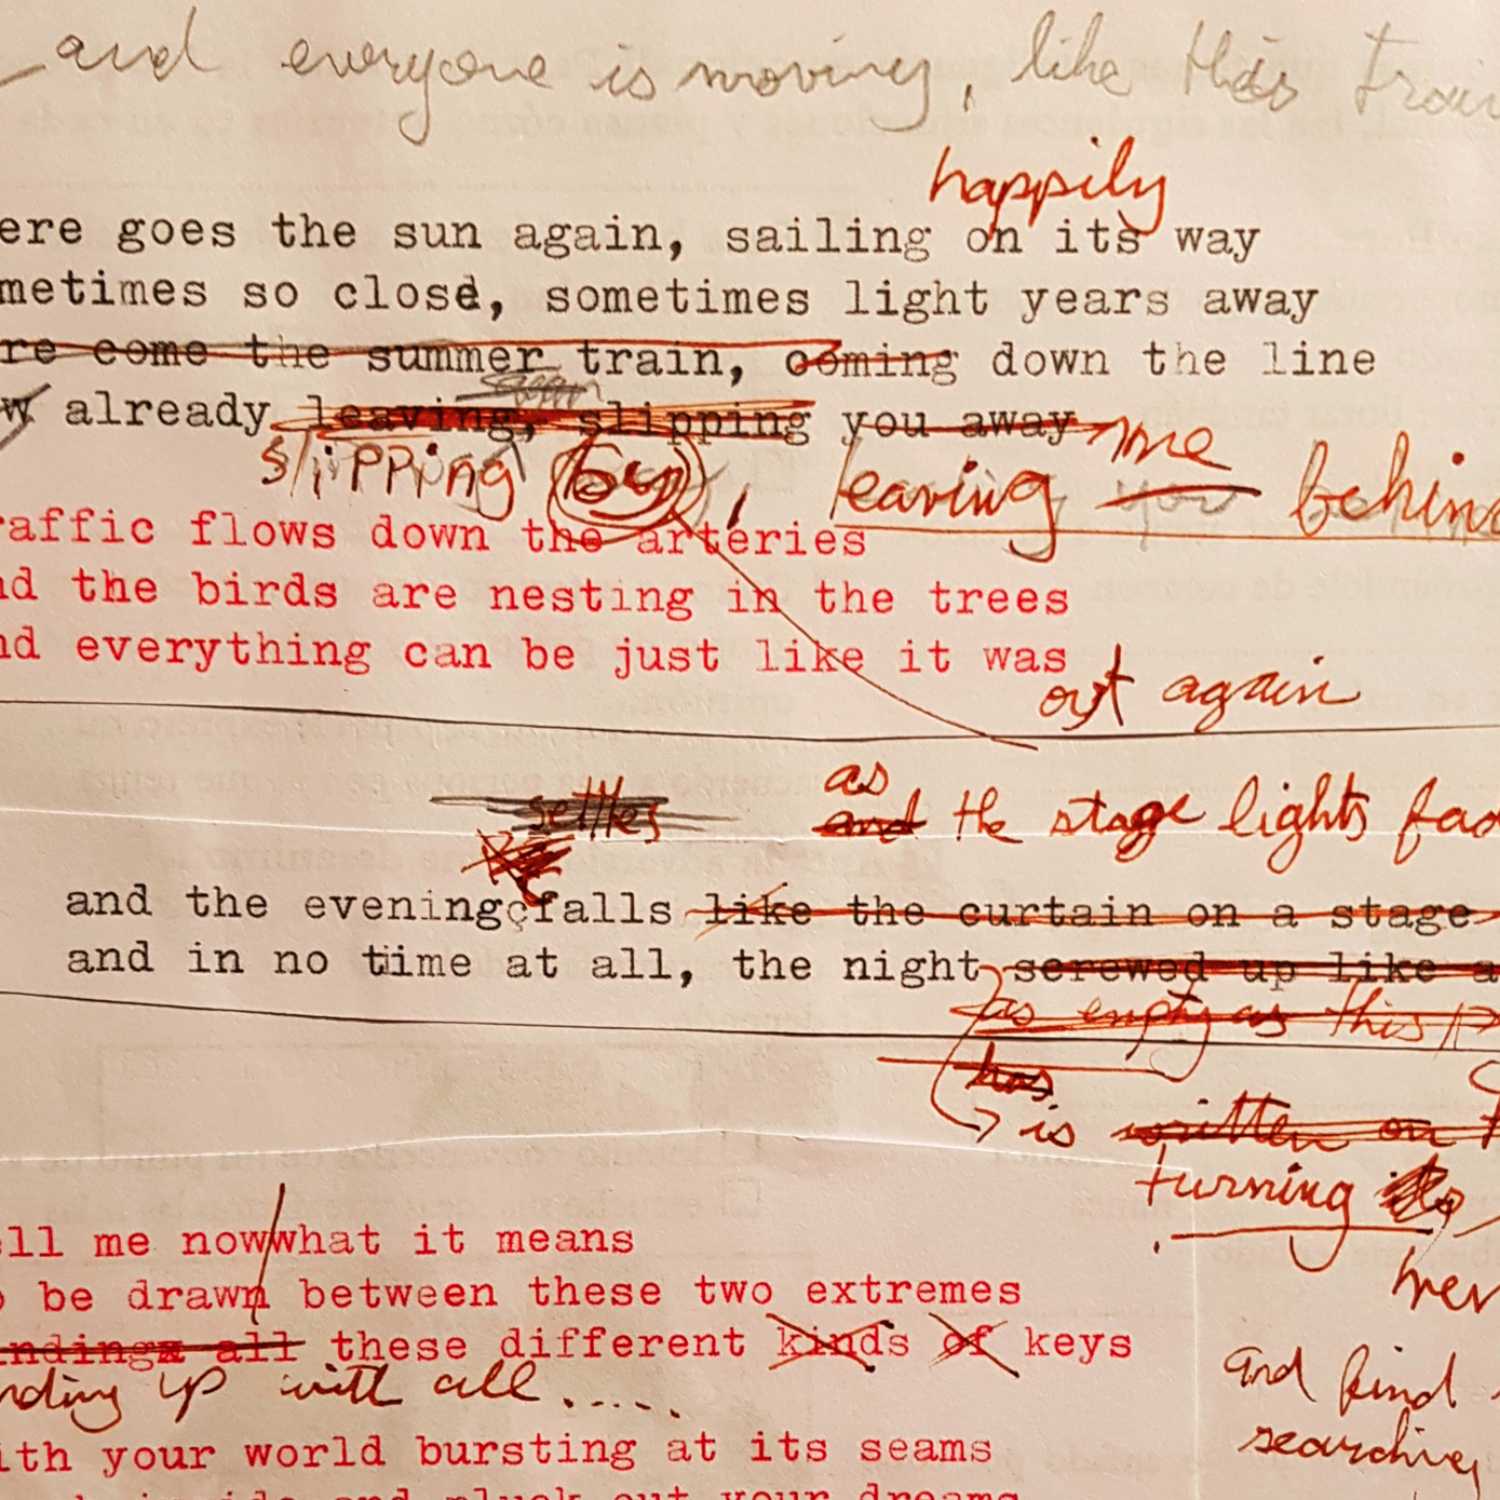 and everyone is moving, like this
happily
ere goes the sun again, sailing on its way
metimes so close, sometimes light years away
re come the summer train, coming down the line
w already leaving, slipping you away me
slipping by, leaving you behin
raffic flows down the arteries
nd the birds are nesting in the trees
nd everything can be just like it was
out again
as
settles and the stage lights fad
and the evening falls like the curtain on a stage
and in no time at all, the night screwed up like a
as empty as this p
has
is written on
turning its
ell me now what it means
o be drawn between these two extremes
ndings all these different kinds of keys
nding up with all .....
and find
searching
ith your world bursting at its seams
and pluck out your dreams